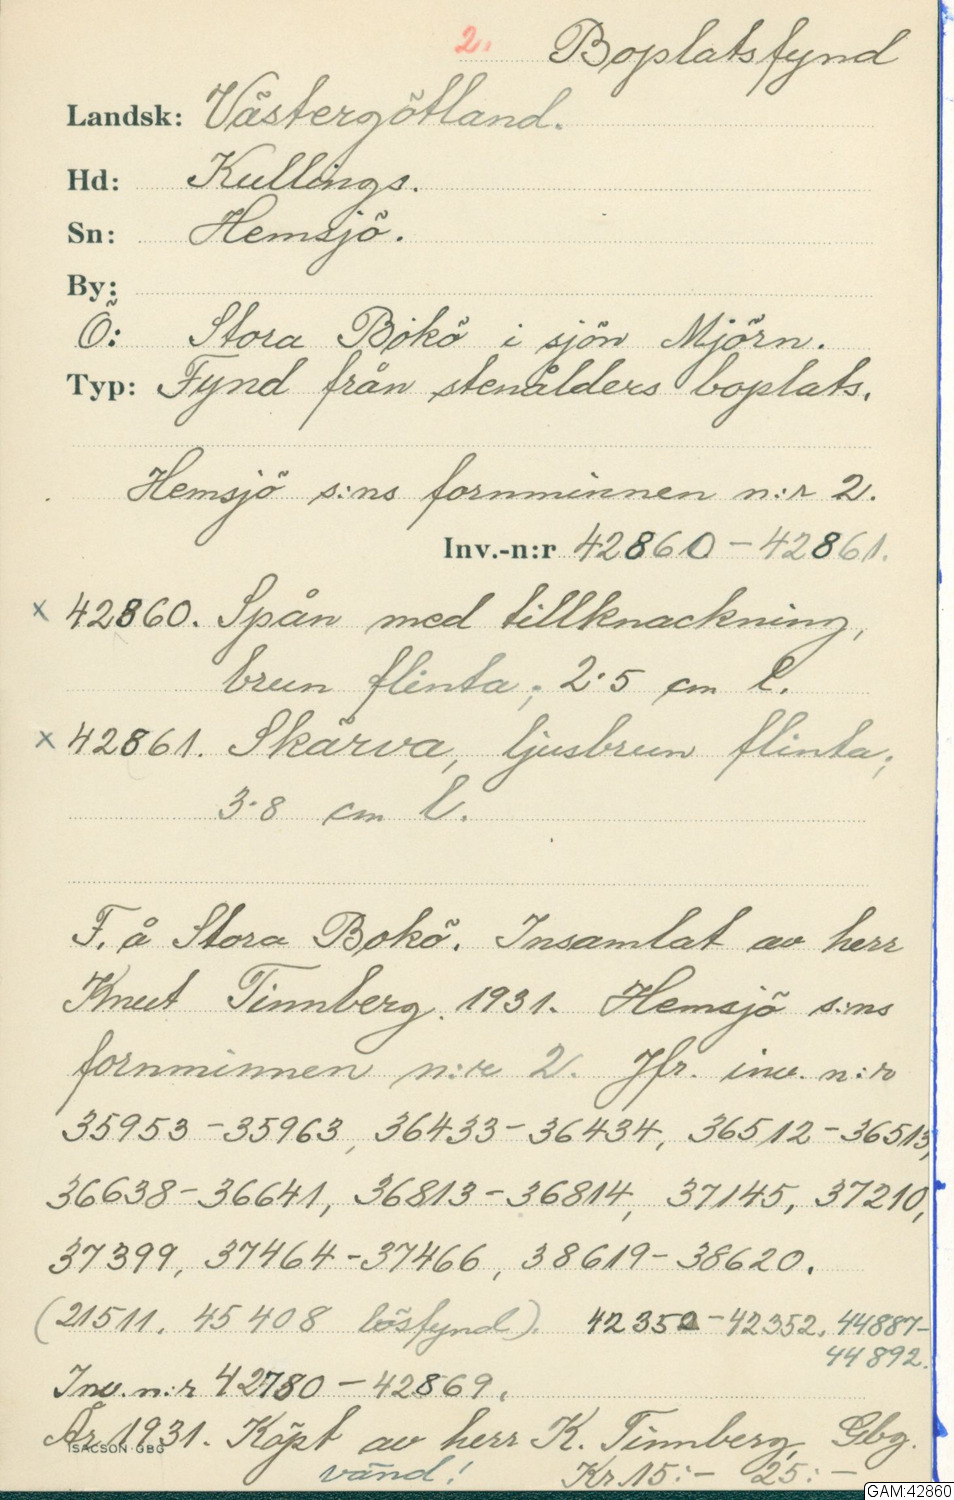 2. Boplatsfynd
Landsk: Västergötland.
Hd: Kullings.
Sn: Hemsjö.
By:
Ö: Stora Bokö i sjön Mjörn.
Typ: Fynd från stenålders boplats.
Hemsjö s:ns fornminnen n:r 2.
Inv.-n:r 42860 – 42861.
x 42860. Spån med tillknackning,
brun flinta; 2·5 cm l.
x 42861. Skärva, ljusbrun flinta;
3·8 cm l.
F. å Stora Bokö. Insamlat av herr
Knut Tinnberg. 1931. Hemsjö s:ns
fornminnen n:r 2. Jfr. inv. n:r
35953 – 35963, 36433 – 36434, 36512 – 36513,
36638 – 36641, 36813 – 36814, 37145, 37210,
37399, 37464 – 37466, 38619 – 38620.
(21511. 45408 lösfynd). 42350 – 42352. 44887–
44892.
Inv. n:r 42780 – 42869.
År 1931. Köpt av herr K. Tinnberg, Gbg.
ISACSON GBG
vänd! Kr 15:– 25:–
GAM:42860